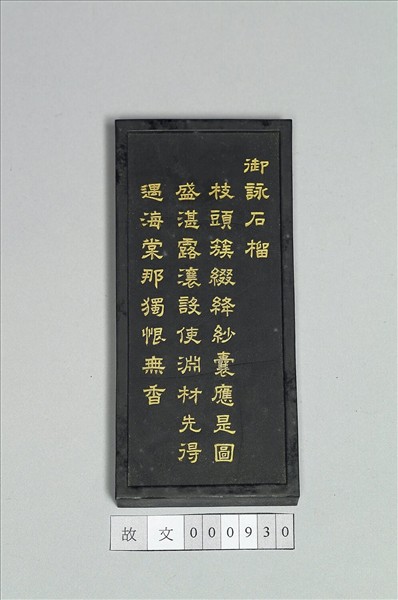 御詠石榴
枝頭簇綴絳紗囊應是圖
盛湛露瀼設使淵材先得
遇海棠那獨恨無香
故文000930